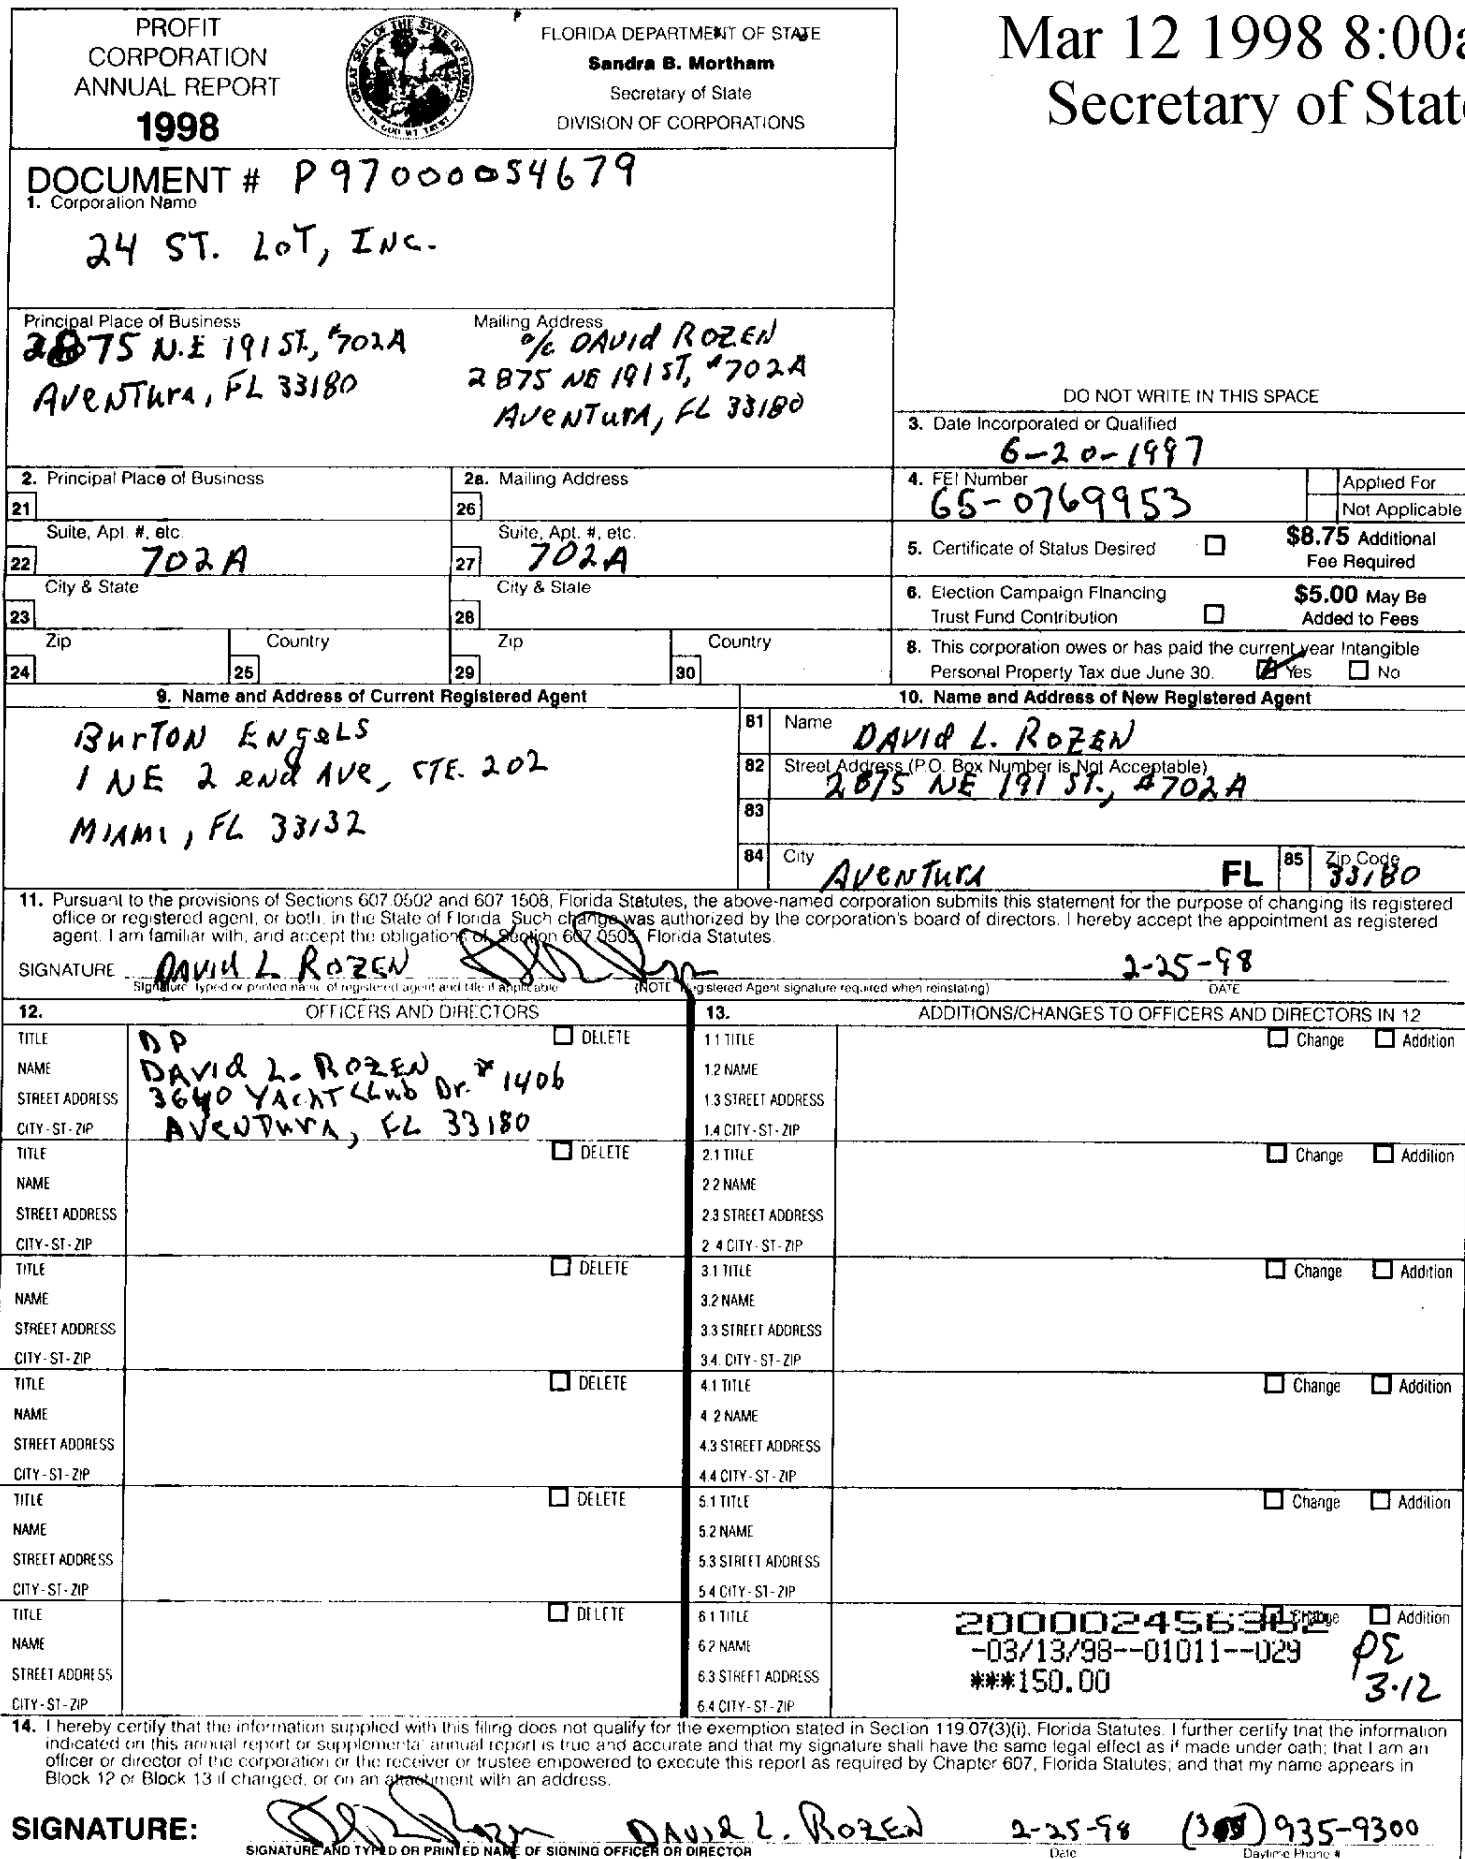 PROFIT
CORPORATION
ANNUAL REPORT
1998
FLORIDA DEPARTMENT OF STATE
Sandra B. Mortham
Secretary of State
DIVISION OF CORPORATIONS
Mar 12 1998 8:00a
Secretary of State
DOCUMENT # P97000054679
1. Corporation Name
24 ST. LOT, INC.
Principal Place of Business
2875 N.E 191 ST., #702A
AVENTURA, FL 33180
Mailing Address
% DAVID ROZEN
2875 NE 191 ST, #702A
AVENTURA, FL 33180
DO NOT WRITE IN THIS SPACE
3. Date Incorporated or Qualified
6-20-1997
2. Principal Place of Business
21
2a. Mailing Address
26
4. FEI Number
65-0769953
Applied For
Not Applicable
Suite, Apt. #, etc.
22 702A
Suite, Apt. #, etc.
27 702A
5. Certificate of Status Desired
$8.75 Additional
Fee Required
City & State
23
City & State
28
6. Election Campaign Financing
Trust Fund Contribution
$5.00 May Be
Added to Fees
Zip
24
Country
25
Zip
29
Country
30
8. This corporation owes or has paid the current year Intangible
Personal Property Tax due June 30. Yes No
9. Name and Address of Current Registered Agent
BURTON ENGELS
1 NE 2 end AVE, STE. 202
MIAMI, FL 33132
10. Name and Address of New Registered Agent
81 Name DAVID L. ROZEN
82 Street Address (P.O. Box Number is Not Acceptable)
2875 NE 191 ST., #702A
83
84 City AVENTURA FL 85 Zip Code 33180
11. Pursuant to the provisions of Sections 607.0502 and 607.1508, Florida Statutes, the above-named corporation submits this statement for the purpose of changing its registered
office or registered agent, or both, in the State of Florida. Such change was authorized by the corporation's board of directors. I hereby accept the appointment as registered
agent. I am familiar with, and accept the obligations of, Section 607.0505, Florida Statutes.
SIGNATURE DAVID L ROZEN 2-25-98
Signature, typed or printed name of registered agent and title if applicable (NOTE Registered Agent signature required when reinstating) DATE
12. OFFICERS AND DIRECTORS
13. ADDITIONS/CHANGES TO OFFICERS AND DIRECTORS IN 12
TITLE DP DELETE
NAME DAVID L. ROZEN
STREET ADDRESS 3640 YACHT CLUB DR. #1406
CITY-ST-ZIP AVENTURA, FL 33180
1.1 TITLE Change Addition
1.2 NAME
1.3 STREET ADDRESS
1.4 CITY-ST-ZIP
TITLE DELETE
NAME
STREET ADDRESS
CITY-ST-ZIP
2.1 TITLE Change Addition
2.2 NAME
2.3 STREET ADDRESS
2.4 CITY-ST-ZIP
TITLE DELETE
NAME
STREET ADDRESS
CITY-ST-ZIP
3.1 TITLE Change Addition
3.2 NAME
3.3 STREET ADDRESS
3.4. CITY-ST-ZIP
TITLE DELETE
NAME
STREET ADDRESS
CITY-ST-ZIP
4.1 TITLE Change Addition
4.2 NAME
4.3 STREET ADDRESS
4.4 CITY-ST-ZIP
TITLE DELETE
NAME
STREET ADDRESS
CITY-ST-ZIP
5.1 TITLE Change Addition
5.2 NAME
5.3 STREET ADDRESS
5.4 CITY-ST-ZIP
TITLE DELETE
NAME
STREET ADDRESS
CITY-ST-ZIP
6.1 TITLE Change Addition
6.2 NAME
6.3 STREET ADDRESS
6.4 CITY-ST-ZIP
200002456362
-03/13/98--01011--029
***150.00
3-12
14. I hereby certify that the information supplied with this filing does not qualify for the exemption stated in Section 119.07(3)(i), Florida Statutes. I further certify that the information
indicated on this annual report or supplemental annual report is true and accurate and that my signature shall have the same legal effect as if made under oath; that I am an
officer or director of the corporation or the receiver or trustee empowered to execute this report as required by Chapter 607, Florida Statutes; and that my name appears in
Block 12 or Block 13 if changed, or on an attachment with an address.
SIGNATURE: DAVID L. ROZEN 2-25-98 (305) 935-9300
SIGNATURE AND TYPED OR PRINTED NAME OF SIGNING OFFICER OR DIRECTOR Date Daytime Phone #